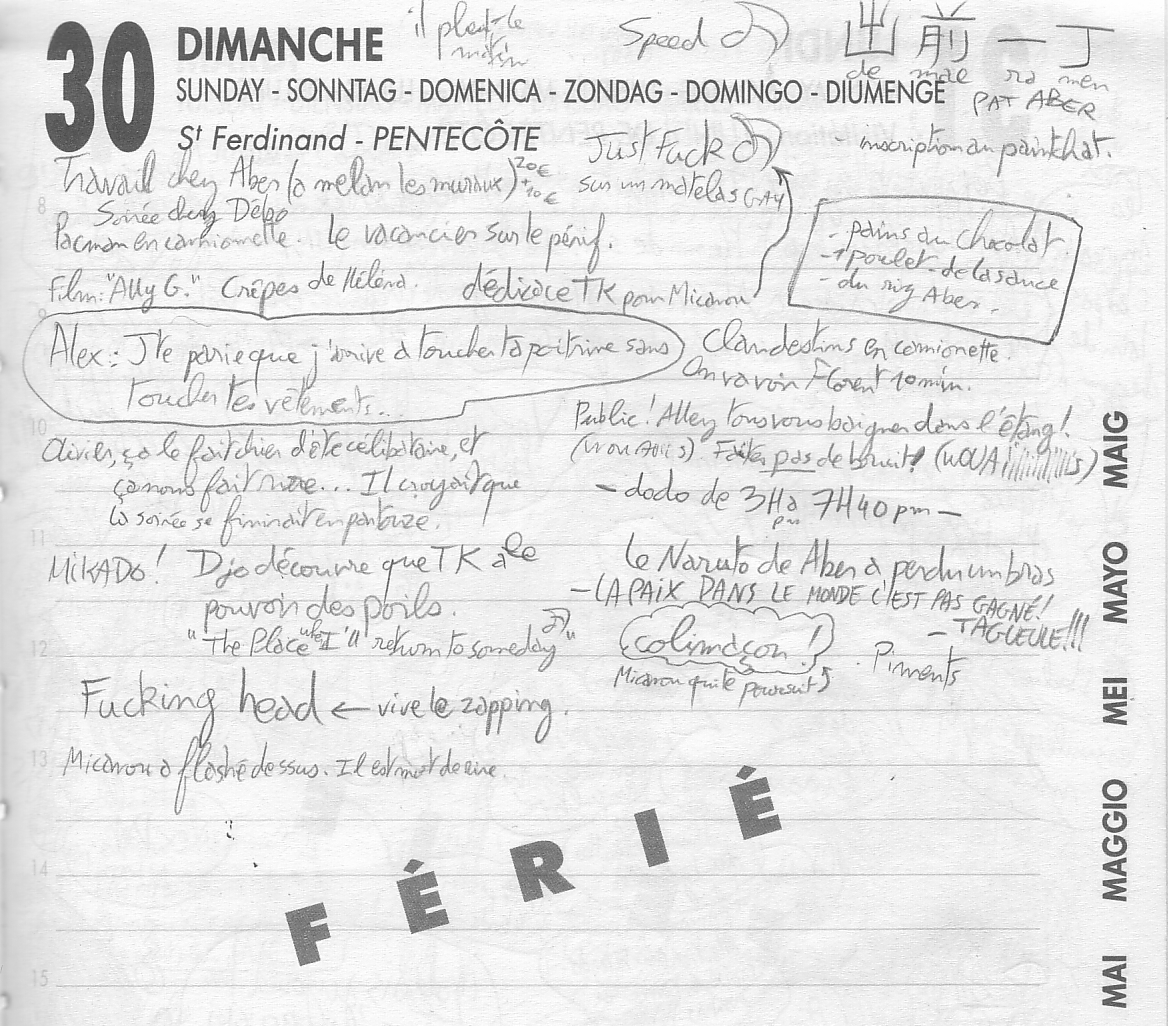 30 DIMANCHE
il pleut le matin
Speed
出前一丁
de mae ra men
PAT ABER
SUNDAY - SONNTAG - DOMENICA - ZONDAG - DOMINGO - DIUMENGE
St Ferdinand - PENTECÔTE
Just Fuck
sur un matelas GAY
inscription au painkhat.
Travail chez Aber (a melan les muriaux) 20€
+10€
8
Soirée chez Délao
Pacman en camionette. Le vacancier sur le périf.
- pains au chocolat
- 1 poulet - de la sauce
- du riz Aber.
Film: "Ally G." Crêpes de Héléna. dédicace TK pour Micarou
9
Alex : J'te parie que j'arrive à toucher ta poitrine sans
toucher tes vêtements...
Clandestins en camionette.
On va voir Florent 10 min.
10
Public ! Allez tous vous baigner dans l'étang !
(WOUAIIS). Faites pas de bruit ! (WOUAIIIIIIIIIIIS)
Olivier, ça le fait chier d'être célibataire, et
ça nous fait rire... Il croyait que
la soirée se finirait en partouze.
- dodo de 3H à 7H40 pm -
pm
11
MiKADO ! Djo découvre que TK a le
pouvoir des poils.
Le Naruto de Aber a perdu un bras
- LA PAIX DANS LE MONDE C'EST PAS GAGNÉ !
- TA GUEULE !!!
12
"The Place where I'll return to someday"
colimaçon !
Micarou qui le poursuit
. Piments
Fucking head ← vive le zapping.
13
Micarou a flashé dessus. Il est mort de rire.
14
FÉRIÉ
15
MAI MAGGIO MEI MAYO MAIG